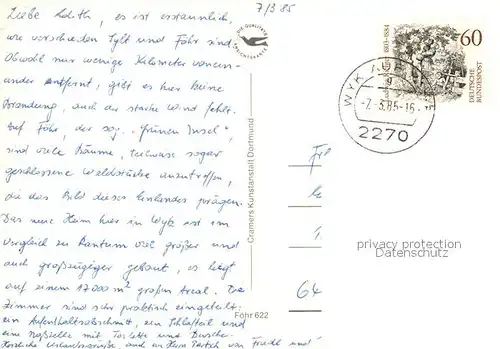 7/3 85
Liebe Edith, es ist erstaunlich,
wie verschieden Sylt und Föhr sind.
Obwohl nur wenige Kilometer vonein-
ander entfernt, gibt es hier keine
Brandung, auch der starke Wind fehlt.
Auf Föhr, der sog. „Grünen Insel",
sind viele Bäume, teilweise sogar
geschlossene Waldstücke anzutreffen,
die das Bild dieses Eilandes prägen.
Das neue Heim hier in Wyk ist im
Vergleich zu Rantum viel größer und
auch großzügiger gebaut, es liegt
auf einem 17000 m² großen Areal. Die
Zimmer sind sehr praktisch eingeteilt:
ein Aufenthaltsabschnitt, ein Schlafteil und
eine Naßzelle mit Toilette und Dusche.
Herzliche Urlaubsgrüße, auch an Herrn von Friedl und
DIE QUALITÄTS
ANSICHTSKARTE
Cramers Kunstanstalt Dortmund
Föhr 622
1803-1884
60
DEUTSCHE
BUNDESPOST
WYK AUF
g
-7.-3.85-16
2270
Fr
64
privacy protection
Datenschutz